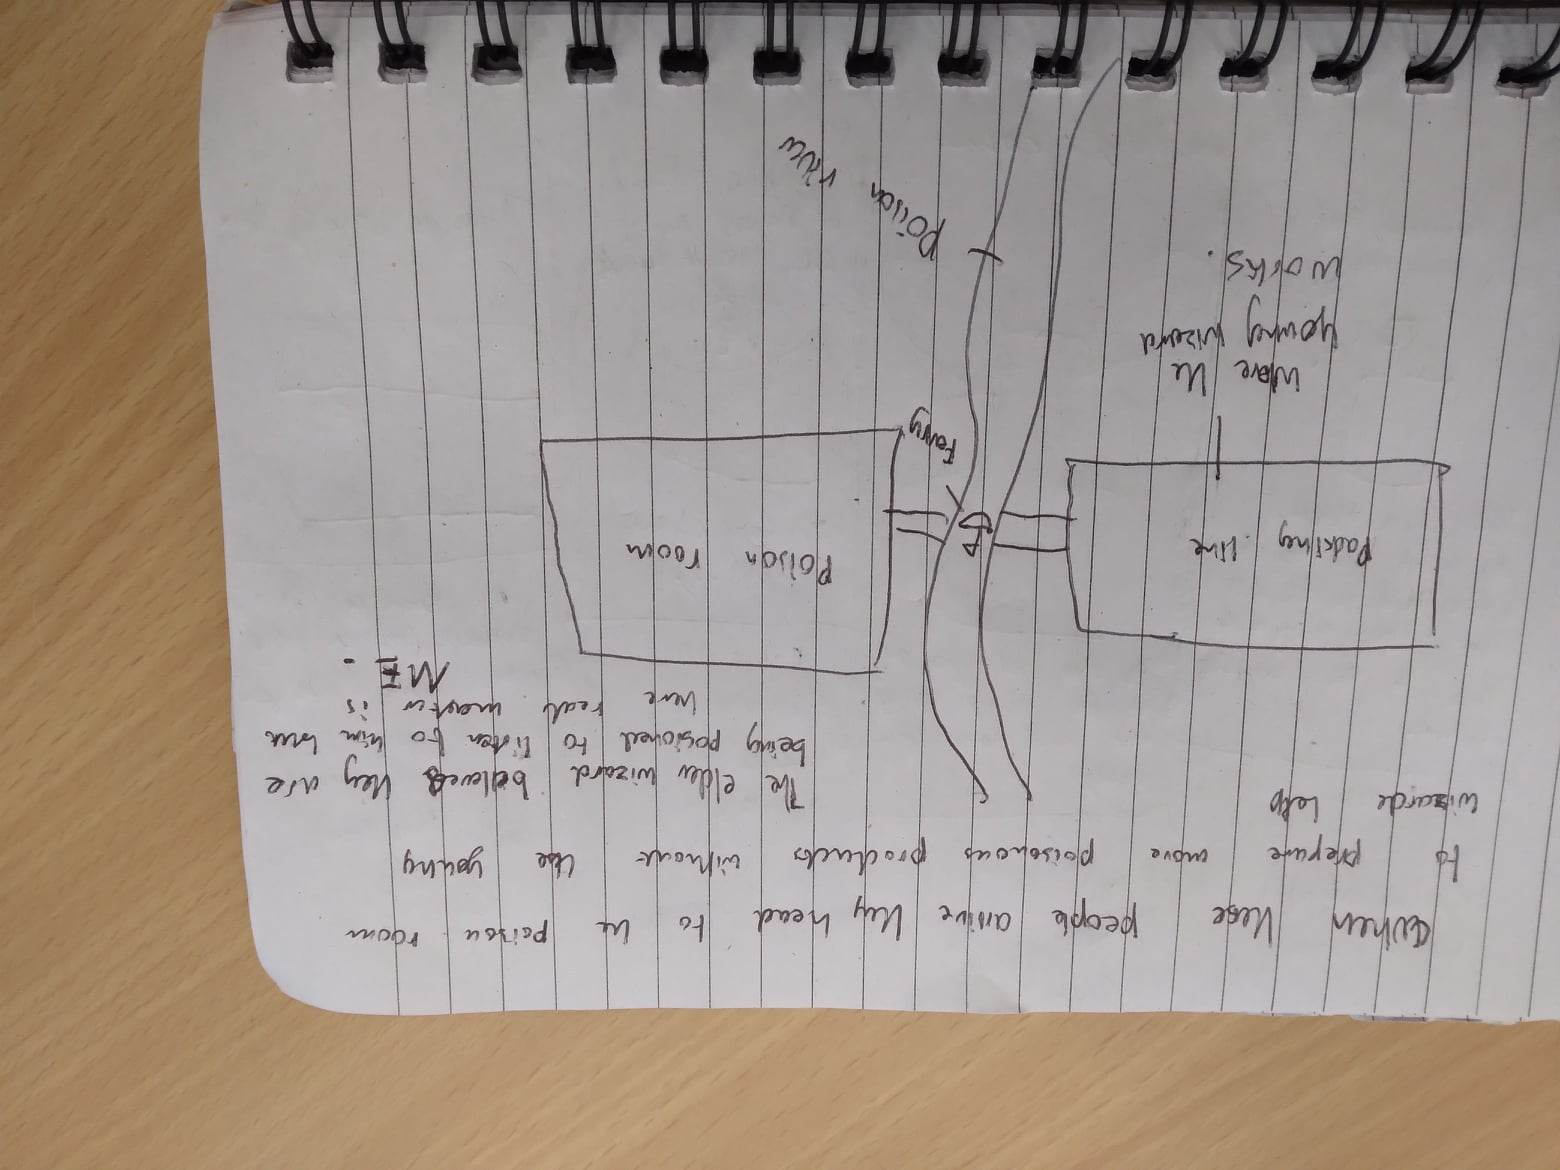 When these people arrive they head to the poison room
to prepare more poisonous products without the young
wizards help
The elder wizard beleves they are
being posioned to listen to him but
here real master is
ME.
Packing line
Poison room
Farry
Ware the
young wizard
works.
Poison river